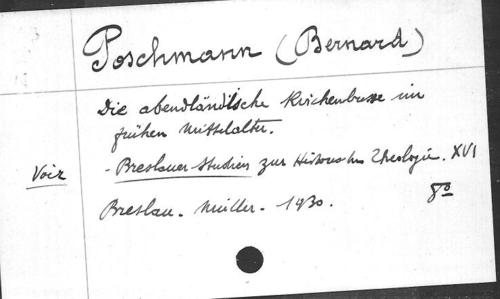 Poschmann (Bernard)
Die abendländische Kirchenbusse im
frühen Mittelalter.
Voir - Breslauer Studien zur Historischen Theologie. XVI
Breslau - Müller - 1930. 8°